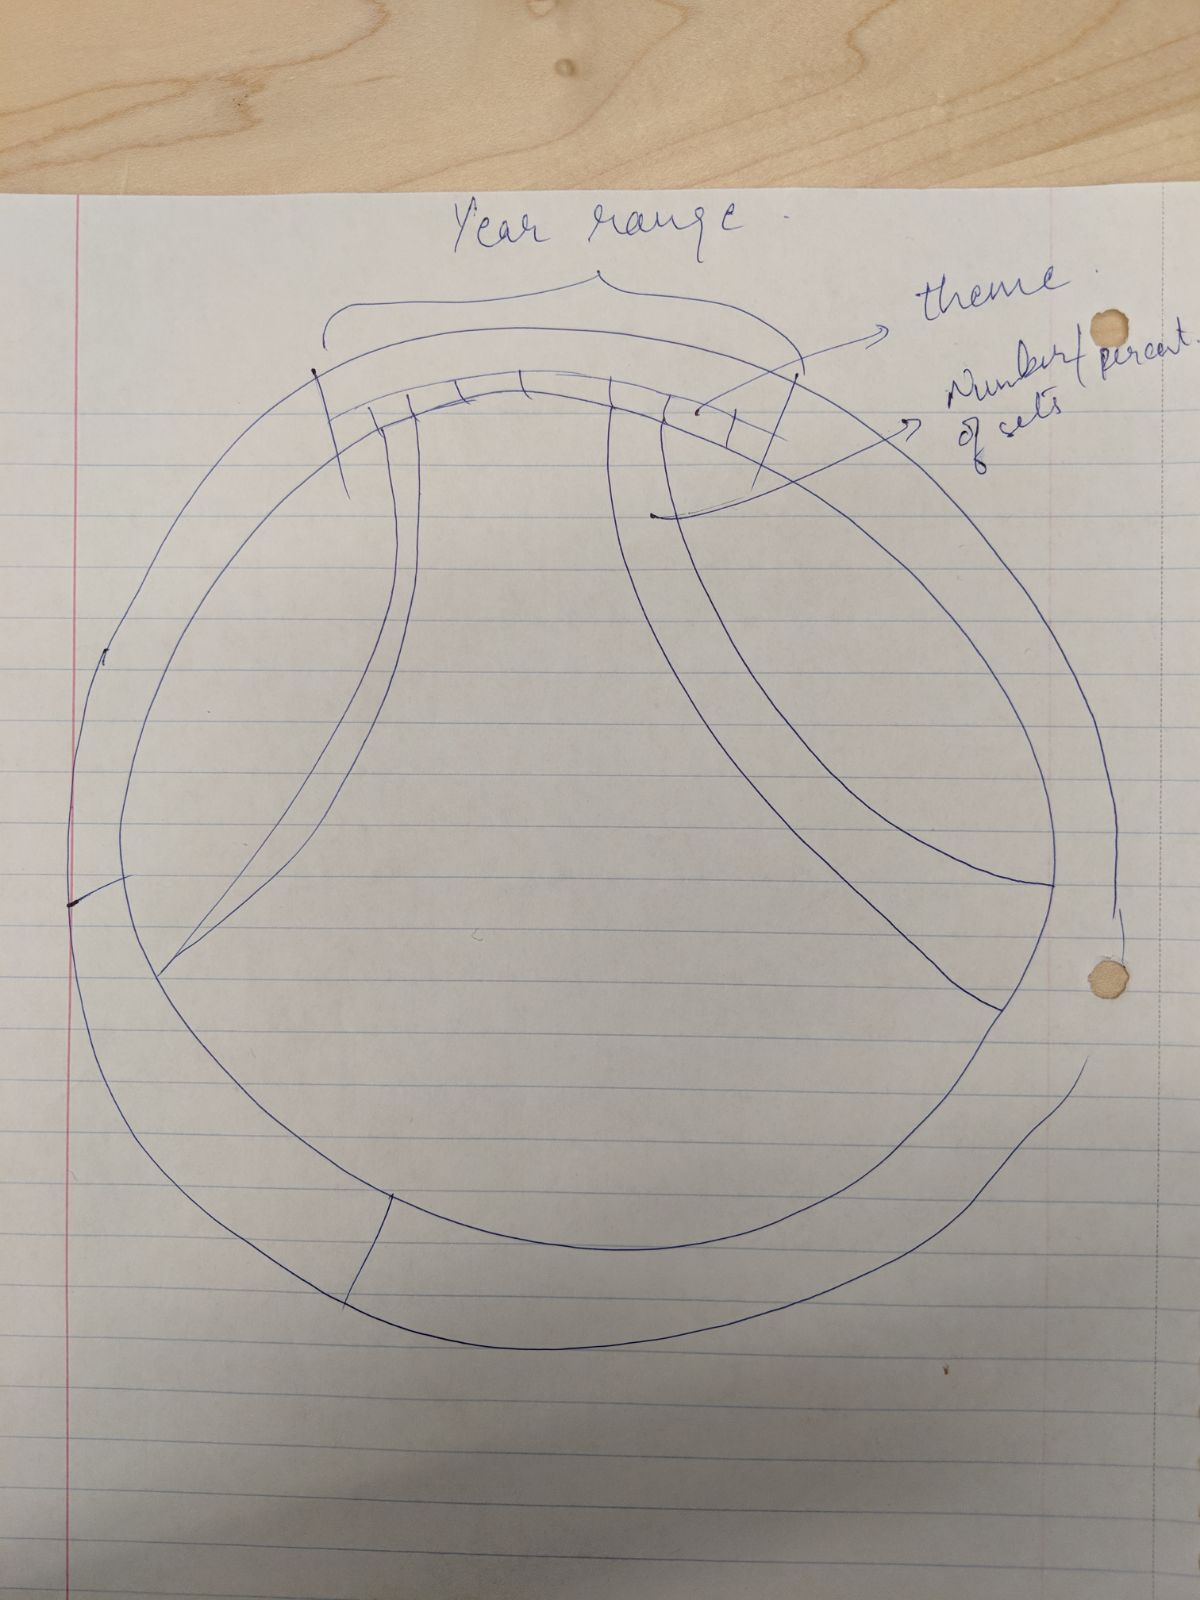 Year range
theme
Number/percent
of sets